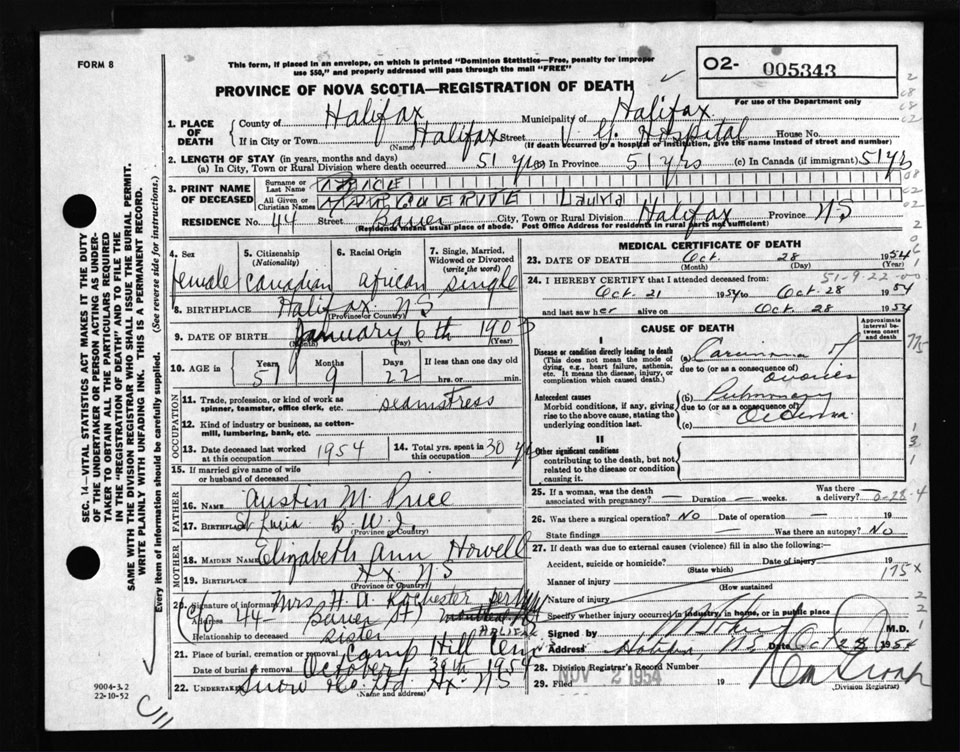 FORM 8
This form, if placed in an envelope, on which is printed "Dominion Statistics—Free, penalty for improper
use $50," and properly addressed will pass through the mail "FREE"
PROVINCE OF NOVA SCOTIA—REGISTRATION OF DEATH
O2- 005343
For use of the Department only
1. PLACE OF DEATH
County of Halifax Municipality of Halifax
If in City or Town Halifax Street V. G. Hospital House No.
(Name) (If death occurred in a hospital or institution, give the name instead of street and number)
2. LENGTH OF STAY (in years, months and days)
(a) In City, Town or Rural Division where death occurred 51 yrs (b) In Province 51 yrs (c) In Canada (if immigrant) 51 yrs
3. PRINT NAME OF DECEASED
Surname or Last Name PRICE
All Given or Christian Names MARGUERITE Laura
RESIDENCE No. 44 Street Bauer City, Town or Rural Division Halifax Province NS
(Residence means usual place of abode. Post Office Address for residents in rural parts not sufficient)
4. Sex female
5. Citizenship (Nationality) Canadian
6. Racial Origin african
7. Single, Married, Widowed or Divorced (write the word) single
8. BIRTHPLACE Halifax NS
(Province or Country)
9. DATE OF BIRTH January 6th 1903
(Month) (Day) (Year)
10. AGE in Years 51 Months 9 Days 22 If less than one day old hrs. or min.
OCCUPATION
11. Trade, profession, or kind of work as
spinner, teamster, office clerk, etc. seamstress
12. Kind of industry or business, as cotton-
mill, lumbering, bank, etc.
13. Date deceased last worked at this occupation 1954
14. Total yrs. spent in this occupation 30 yrs
15. If married give name of wife
or husband of deceased
FATHER
16. NAME Austin M. Price
17. BIRTHPLACE St Lucia B. W. I.
(Province or Country)
MOTHER
18. MAIDEN NAME Elizabeth Ann Howell
19. BIRTHPLACE Hx. NS
(Province or Country)
20. Signature of informant Mrs. H. A. Rochester
Address 44 Bauer St. HALIFAX
Relationship to deceased sister
21. Place of burial, cremation or removal Camp Hill Cem
Date of burial or removal October 30th 1954
22. UNDERTAKER Snow Co. Ltd. Hx. NS
(Name and address)
MEDICAL CERTIFICATE OF DEATH
23. DATE OF DEATH Oct. 28 1954
(Month) (Day) (Year)
51-9-22-00
24. I HEREBY CERTIFY that I attended deceased from:
Oct. 21 1954 to Oct-28 1954
and last saw her alive on Oct. 28 1954
CAUSE OF DEATH
Approximate interval between onset and death
I
Disease or condition directly leading to death
(This does not mean the mode of
dying, e.g., heart failure, asthenia,
etc. It means the disease, injury, or
complication which caused death.)
(a) Carcinoma of
due to (or as a consequence of)
ovaries
Antecedent causes
Morbid conditions, if any, giving
rise to the above cause, stating the
underlying condition last.
(b) Pulmonary
due to (or as a consequence of)
Oedema
(c)
II
Other significant conditions
contributing to the death, but not
related to the disease or condition
causing it.
25. If a woman, was the death
associated with pregnancy? — Duration — weeks. Was there a delivery?
26. Was there a surgical operation? No Date of operation — 19
State findings — Was there an autopsy? No
27. If death was due to external causes (violence) fill in also the following:—
Accident, suicide or homicide? Date of injury 19
(State which)
175x
Manner of injury
(How sustained
Nature of injury
Specify whether injury occurred in industry, in home, or in public place
Signed by M.D.
Address Halifax, NS Date Oct 28 1954
28. Division Registrar's Record Number
29. Filed NOV 2 1954 19
(Division Registrar)
SEC. 14—VITAL STATISTICS ACT MAKES IT THE DUTY
OF THE UNDERTAKER OR PERSON ACTING AS UNDER-
TAKER TO OBTAIN ALL THE PARTICULARS REQUIRED
IN THE "REGISTRATION OF DEATH" AND TO FILE THE
SAME WITH THE DIVISION REGISTRAR WHO SHALL ISSUE THE BURIAL PERMIT.
WRITE PLAINLY WITH UNFADING INK. THIS IS A PERMANENT RECORD.
Every item of information should be carefully supplied. (See reverse side for instructions.)
9004-3.2
22-10-52